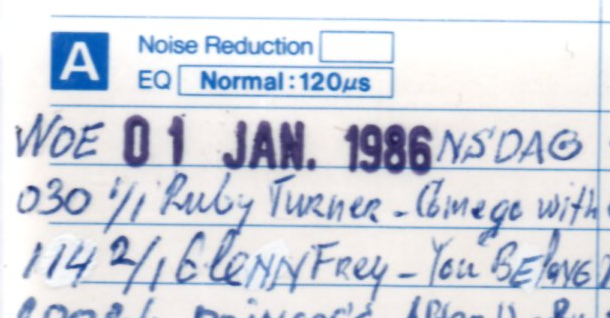 A
Noise Reduction
EQ Normal:120µs
WOE 01 JAN. 1986 NSDAG
030 1/1 Ruby Turner - Come go with
114 2/1 Glenn Frey - You Belong